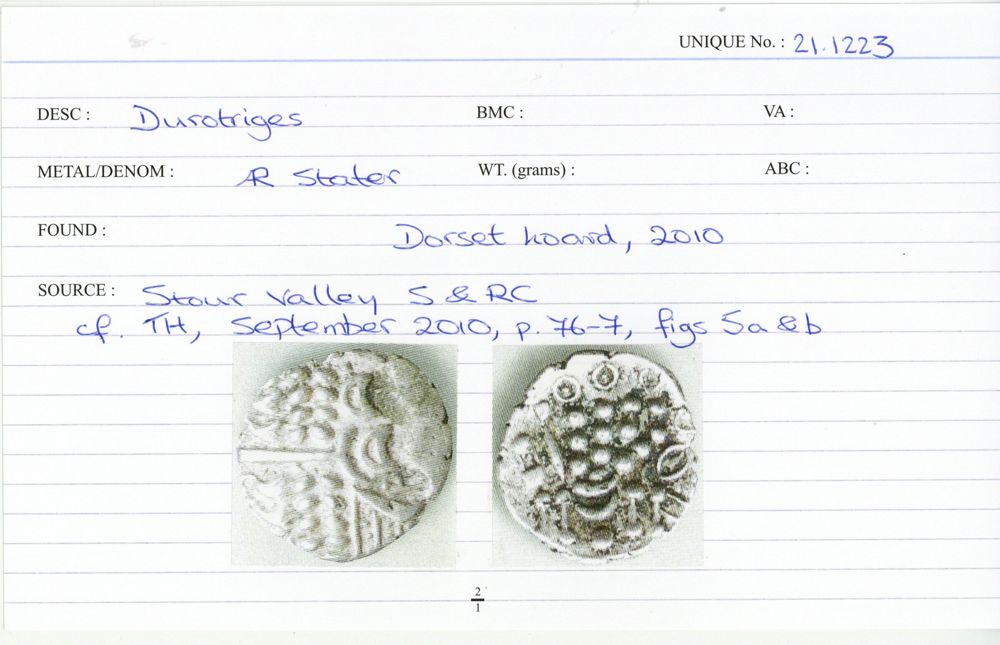 UNIQUE No. : 21.1223
DESC : Durotriges BMC : VA :
METAL/DENOM : AR Stater WT. (grams) : ABC :
FOUND : Dorset hoard, 2010
SOURCE : Stour Valley S & RC
cf. TH, September 2010, p. 76-7, figs 5a & b
2
1